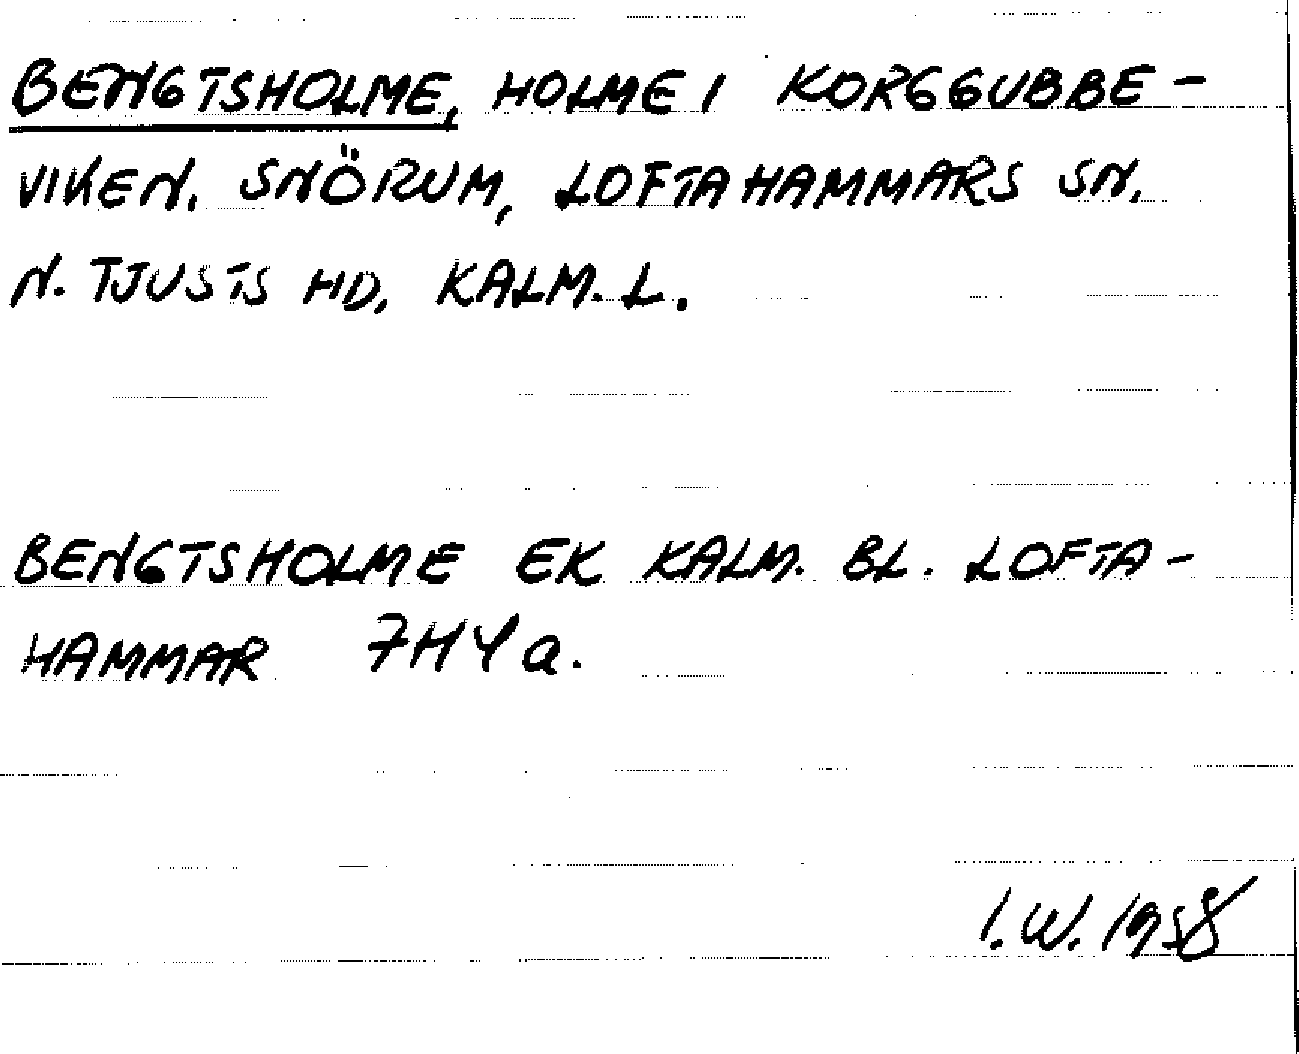 BENGTSHOLME, HOLME I KORGGUBBE-
VIKEN. SNÖRUM, LOFTAHAMMARS SN.
N. TJUSTS HD, KALM. L.
BENGTSHOLME EK KALM. BL. LOFTA-
HAMMAR 7H4a.
I.W. 1958